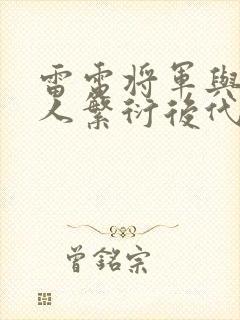 雷雷将軍與
人繁衍後代
曾銘宗